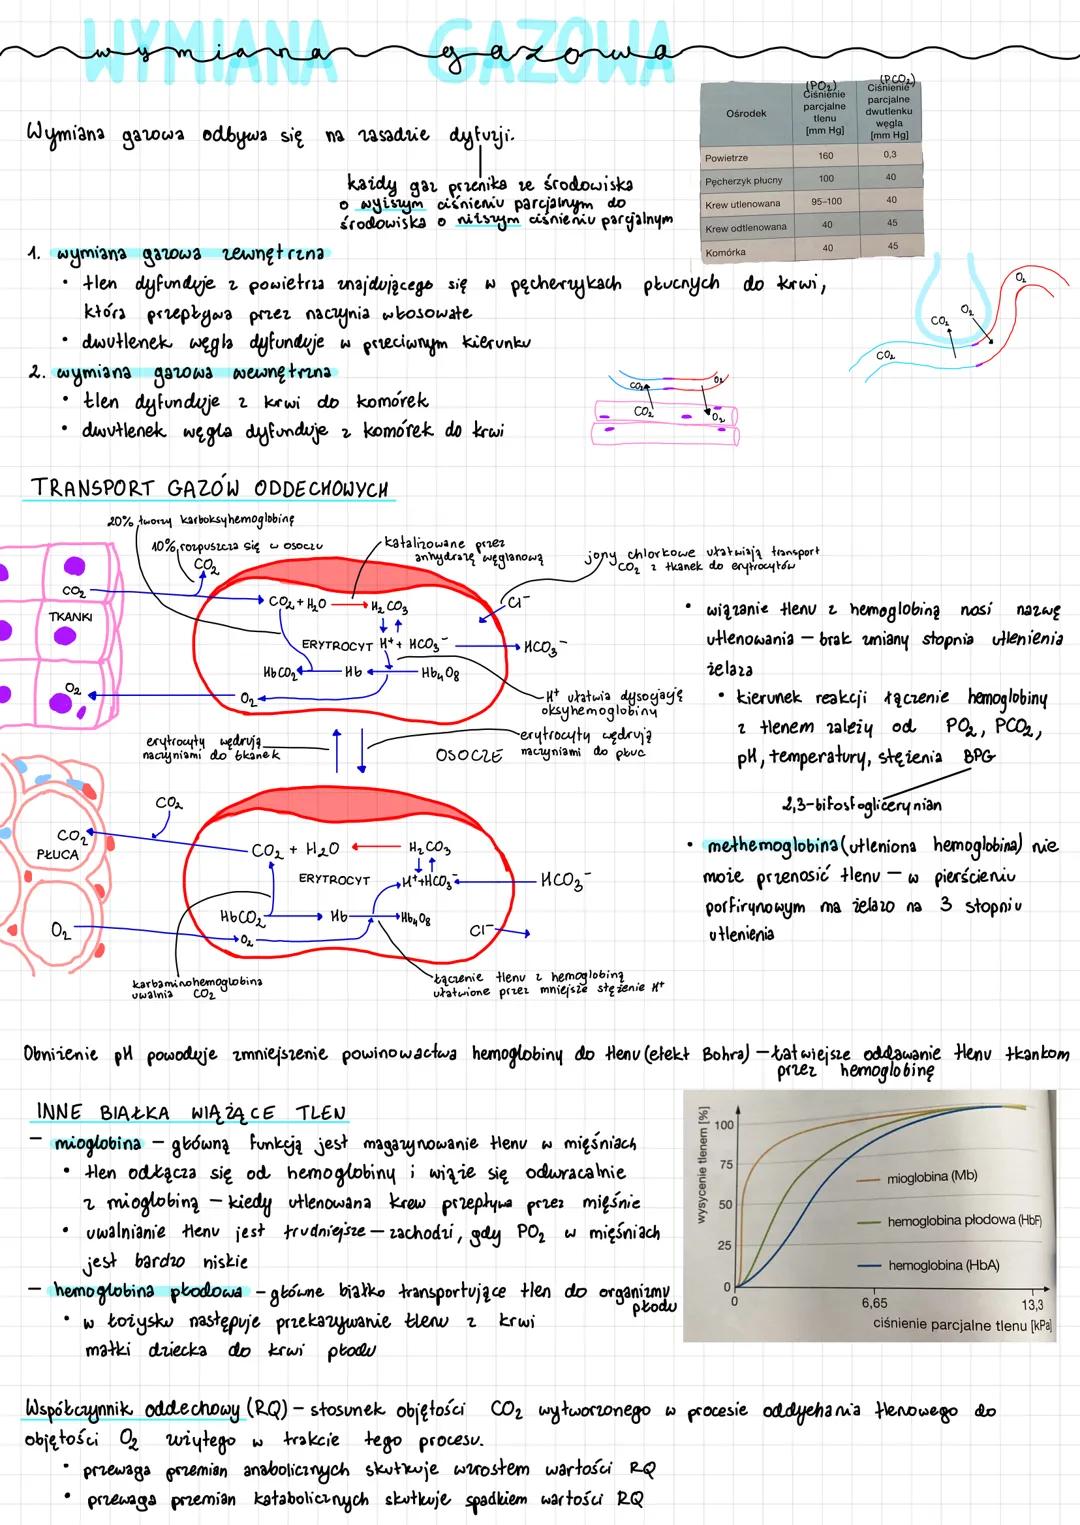 WYMIANA GAZOWA
wymiana gazowa
Ośrodek
(PO₂)
Ciśnienie parcjalne tlenu [mm Hg]
(PCO₂)
Ciśnienie parcjalne dwutlenku węgla [mm Hg]
Powietrze 160 0,3
Pęcherzyk płucny 100 40
Krew utlenowana 95–100 40
Krew odtlenowana 40 45
Komórka 40 45
Wymiana gazowa odbywa się na zasadzie dyfuzji.
każdy gaz przenika ze środowiska
o wyższym ciśnieniu parcjalnym do
środowiska o niższym ciśnieniu parcjalnym
1. wymiana gazowa zewnętrzna
• tlen dyfunduje z powietrza znajdującego się w pęcherzykach płucnych do krwi,
która przepływa przez naczynia włosowate
• dwutlenek węgla dyfunduje w przeciwnym kierunku
2. wymiana gazowa wewnętrzna
• tlen dyfunduje z krwi do komórek
• dwutlenek węgla dyfunduje z komórek do krwi
CO₂ O₂
CO₂ O₂
O₂
CO₂ O₂
CO₂
TRANSPORT GAZÓW ODDECHOWYCH
20% tworzy karboksyhemoglobinę
10% rozpuszcza się w osoczu
CO₂
katalizowane przez
anhydrazę węglanową
jony chlorkowe ułatwiają transport
CO₂ z tkanek do erytrocytów
CO₂
TKANKI
O₂
CO₂ + H₂O H₂CO₃
Cl⁻
ERYTROCYT H⁺ + HCO₃⁻ HCO₃⁻
HbCO₂ Hb Hb₄O₈
O₂
H⁺ ułatwia dysocjację
oksyhemoglobiny
erytrocyty wędrują
naczyniami do tkanek
OSOCZE
erytrocyty wędrują
naczyniami do płuc
CO₂
CO₂
PŁUCA
O₂
CO₂ + H₂O H₂CO₃
ERYTROCYT H⁺+HCO₃⁻ HCO₃⁻
HbCO₂ Hb Hb₄O₈
O₂
Cl⁻
karbaminohemoglobina
uwalnia CO₂
łączenie tlenu z hemoglobiną
ułatwione przez mniejsze stężenie H⁺
• wiązanie tlenu z hemoglobiną nosi nazwę
utlenowania — brak zmiany stopnia utlenienia
żelaza
• kierunek reakcji łączenie hemoglobiny
z tlenem zależy od PO₂, PCO₂,
pH, temperatury, stężenia BPG
2,3-bifosfoglicerynian
• methemoglobina (utleniona hemoglobina) nie
może przenosić tlenu — w pierścieniu
porfirynowym ma żelazo na 3 stopniu
utlenienia
Obniżenie pH powoduje zmniejszenie powinowactwa hemoglobiny do tlenu (efekt Bohra) — łatwiejsze oddawanie tlenu tkankom
przez hemoglobinę
INNE BIAŁKA WIĄŻĄCE TLEN
— mioglobina — główną funkcją jest magazynowanie tlenu w mięśniach
• tlen odłącza się od hemoglobiny i wiąże się odwracalnie
z mioglobiną — kiedy utlenowana krew przepływa przez mięśnie
• uwalnianie tlenu jest trudniejsze — zachodzi, gdy PO₂ w mięśniach
jest bardzo niskie
— hemoglobina płodowa — główne białko transportujące tlen do organizmu
płodu
• w łożysku następuje przekazywanie tlenu z krwi
matki dziecka do krwi płodu
wysycenie tlenem [%]
100
75
50
25
0
0 6,65 13,3
ciśnienie parcjalne tlenu [kPa]
mioglobina (Mb)
hemoglobina płodowa (HbF)
hemoglobina (HbA)
Współczynnik oddechowy (RQ) — stosunek objętości CO₂ wytworzonego w procesie oddychania tlenowego do
objętości O₂ zużytego w trakcie tego procesu.
• przewaga przemian anabolicznych skutkuje wzrostem wartości RQ
• przewaga przemian katabolicznych skutkuje spadkiem wartości RQ